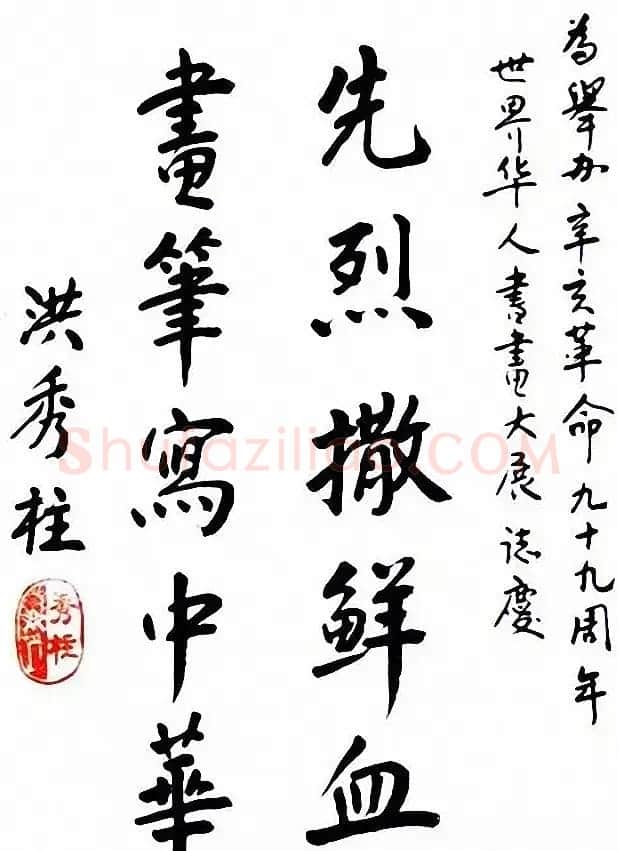 為舉办辛亥革命九十九周年
世界华人書畫大展誌慶
先烈撒鮮血
畫筆寫中華
洪秀柱
Shufaziliao.COM